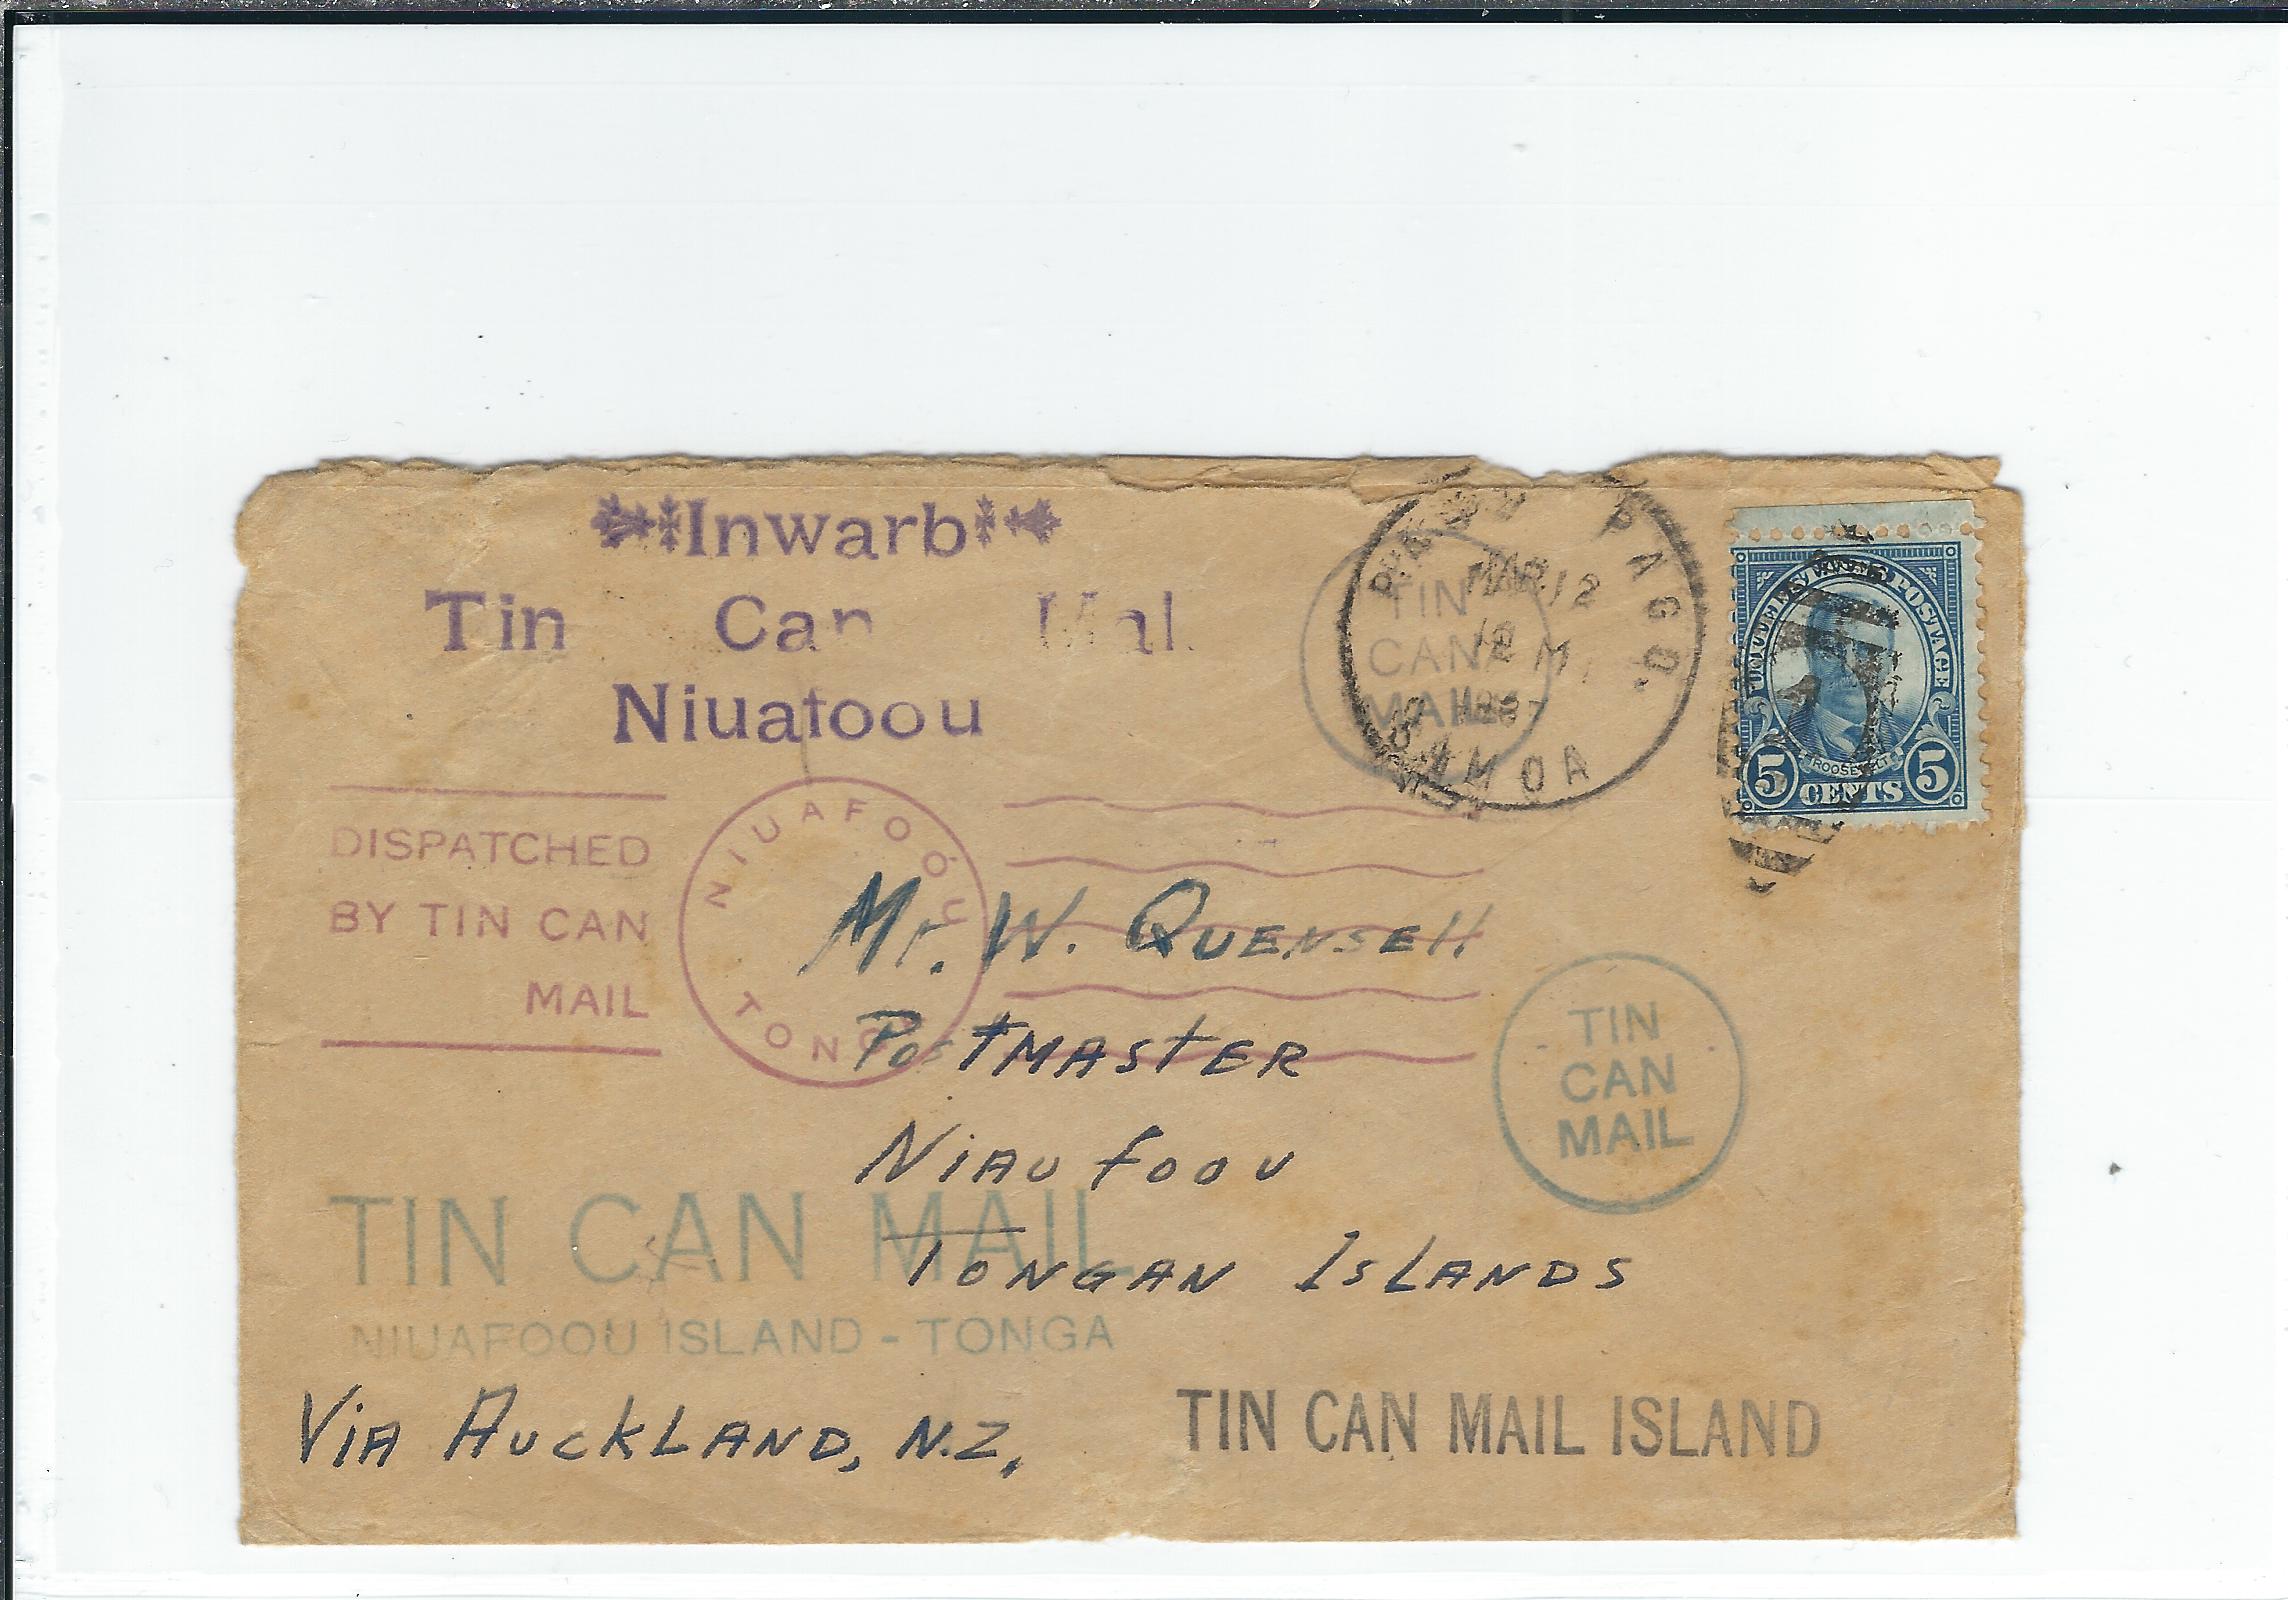 Inwarb
Tin Can
Niuatoou
PAGO PAGO.
MAR 12
M.
SAMOA
TIN
CAN
MAIL
UNITED STATES POSTAGE
ROOSEVELT
5 CENTS 5
DISPATCHED
BY TIN CAN
MAIL
NIUAFOOU
TONGA
Mr. W. QUENSEll
POSTMASTER
NIAU FOOU
TONGAN ISLANDS
TIN
CAN
MAIL
TIN CAN MAIL
NIUAFOOU ISLAND - TONGA
VIA AUCKLAND, N.Z.
TIN CAN MAIL ISLAND